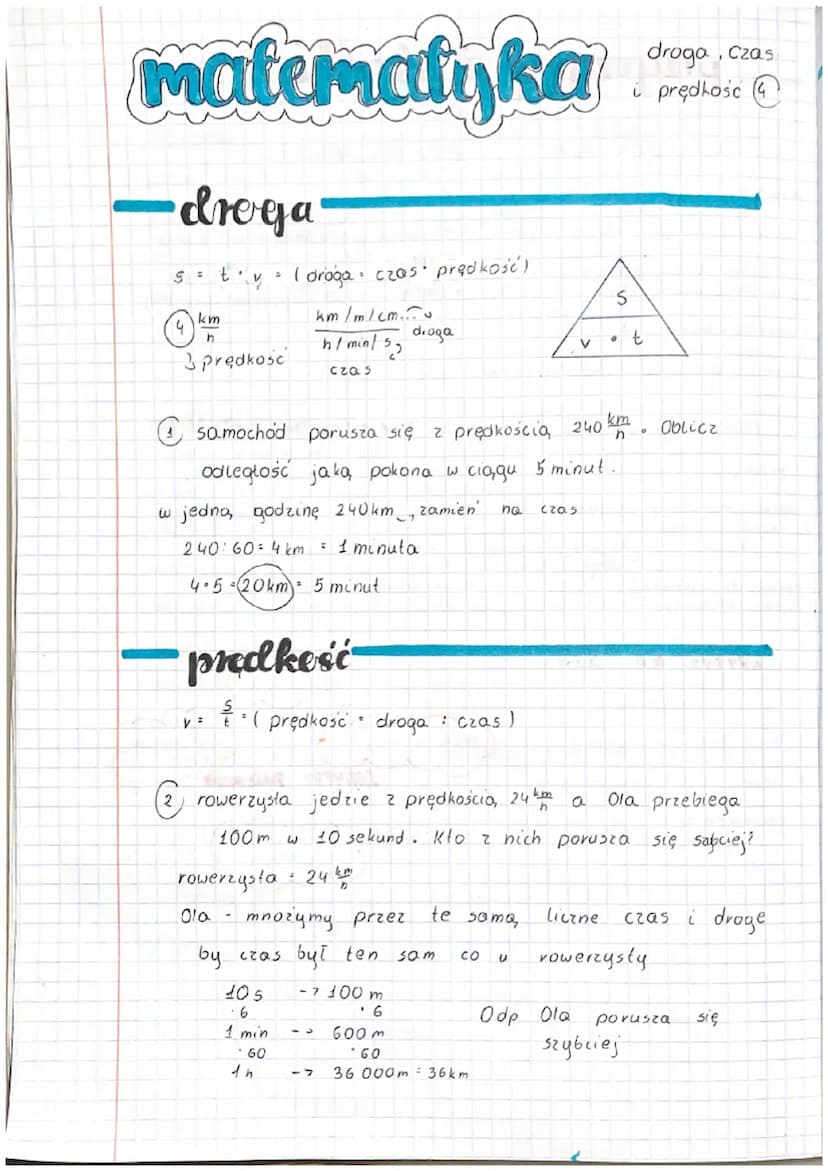 matematyka
droga, czas
i prędkość ④
droga
s = t · v = (droga = czas · prędkość)
④ km/h
prędkość
km/m/cm... droga
h/min/s
czas
s
v · t
① samochód porusza się z prędkością 240 km/h. Oblicz
odległość jaką pokona w ciągu 5 minut.
w jedną godzinę 240km, zamień na czas
240:60=4km = 1 minuta
4·5=20km= 5 minut
prędkość
v = s/t = (prędkość = droga : czas)
② rowerzysta jedzie z prędkością 24 km/h a Ola przebiega
100m w 10 sekund. Kto z nich porusza się
rowerzysta = 24 km/h
Ola - mnożymy przez te samą liczne czas i droge
by czas był ten sam co u rowerzysty
10s -> 100 m
·6 ·6
1 min -> 600 m
·60 ·60
1h -> 36 000m = 36km
Odp Ola porusza się
szybciej